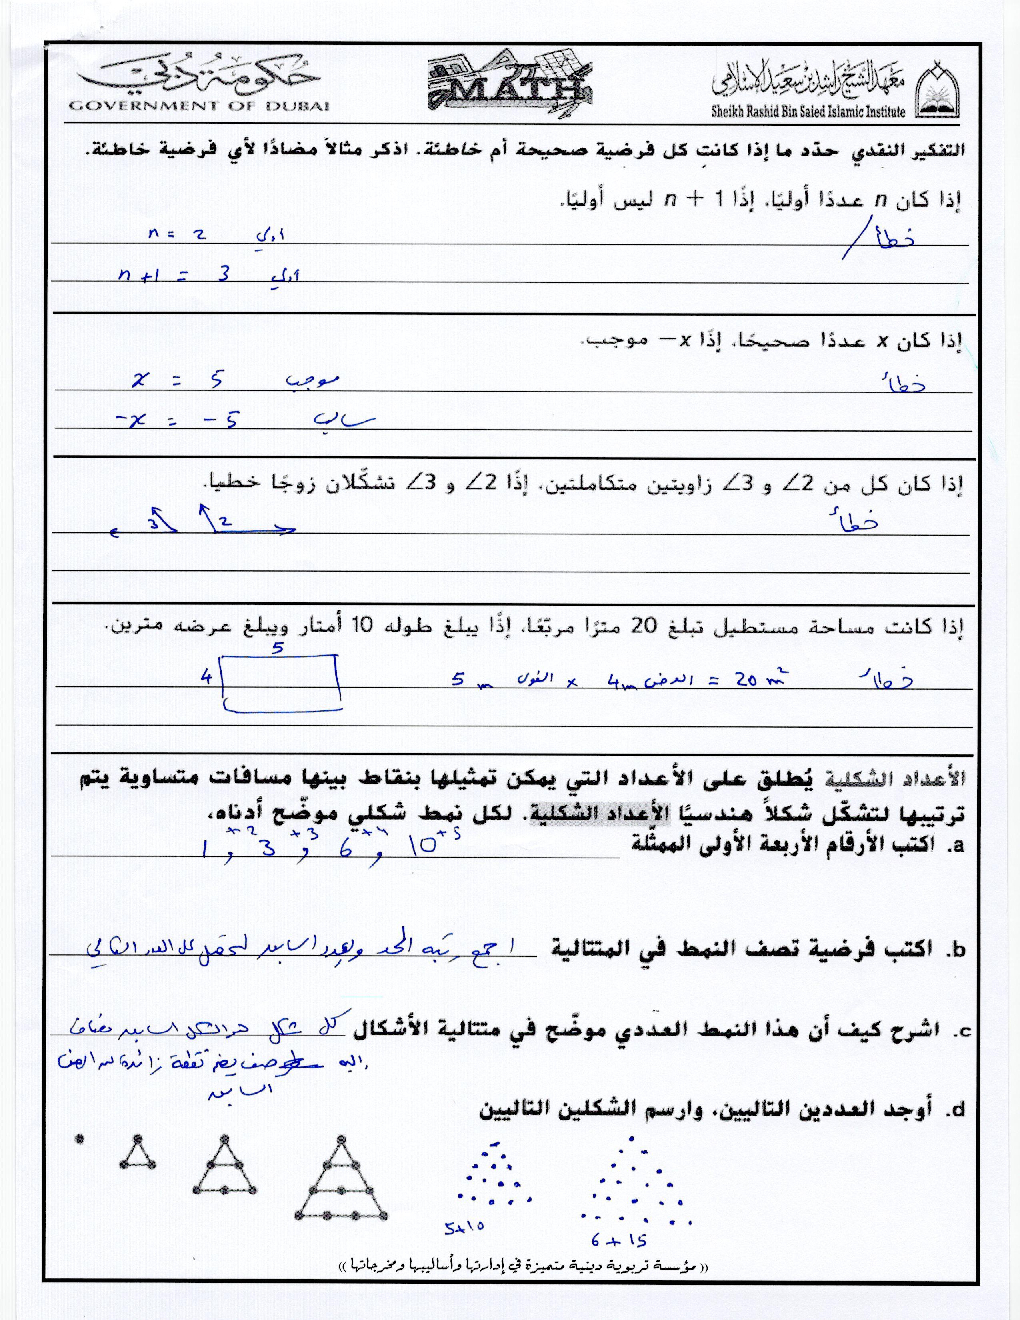 حكومة دبي
GOVERNMENT OF DUBAI
MATH
معهد الشيخ راشد بن سعيد الإسلامي
Sheikh Rashid Bin Saied Islamic Institute
التفكير النقدي حدّد ما إذا كانت كل فرضية صحيحة أم خاطئة. اذكر مثالاً مضادًا لأي فرضية خاطئة.
إذا كان n عددًا أوليًا، إذًا n + 1 ليس أوليًا.
خطأ n = 2 اولي
n+1 = 3 اولي
إذا كان x عددًا صحيحًا، إذًا x− موجب.
خطأ x = 5 موجب
-x = -5 سالب
إذا كان كل من ∠2 و ∠3 زاويتين متكاملتين، إذًا ∠2 و ∠3 تشكّلان زوجًا خطيا.
خطأ 3 2
إذا كانت مساحة مستطيل تبلغ 20 مترًا مربّعًا، إذًا يبلغ طوله 10 أمتار ويبلغ عرضه مترين.
5
خطأ 5 m الطول x 4m العرض = 20 m² 4
الأعداد الشكلية يُطلق على الأعداد التي يمكن تمثيلها بنقاط بينها مسافات متساوية يتم
ترتيبها لتشكّل شكلاً هندسيًا الأعداد الشكلية. لكل نمط شكلي موضّح أدناه،
+2 +3 +4 +5
a. اكتب الأرقام الأربعة الأولى الممثّلة 1 , 3 , 6 , 10
b. اكتب فرضية تصف النمط في المتتالية اجمع رتبة الحد والعدد السابق لتحصل على العدد التالي
c. اشرح كيف أن هذا النمط العددي موضّح في متتالية الأشكال كل شكل هو الشكل السابق مضاف
اليه صف يضم نقطة زائدة عن الصف
السابق
d. أوجد العددين التاليين، وارسم الشكلين التاليين
5+10
6+15
(( مؤسسة تربوية دينية متميزة في إدارتها وأساليبها ومخرجاتها ))